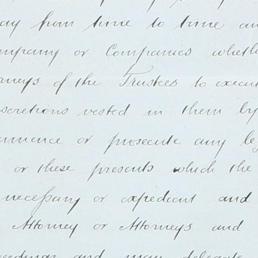 may from time to time an
ompany or Companies wheth
rneys of the Trustees to execut
iscretions vested in them by
mmence or prosecute any leg
or these presents which the
necessary or expedient and
Attorney or Attorneys and
and may delegate